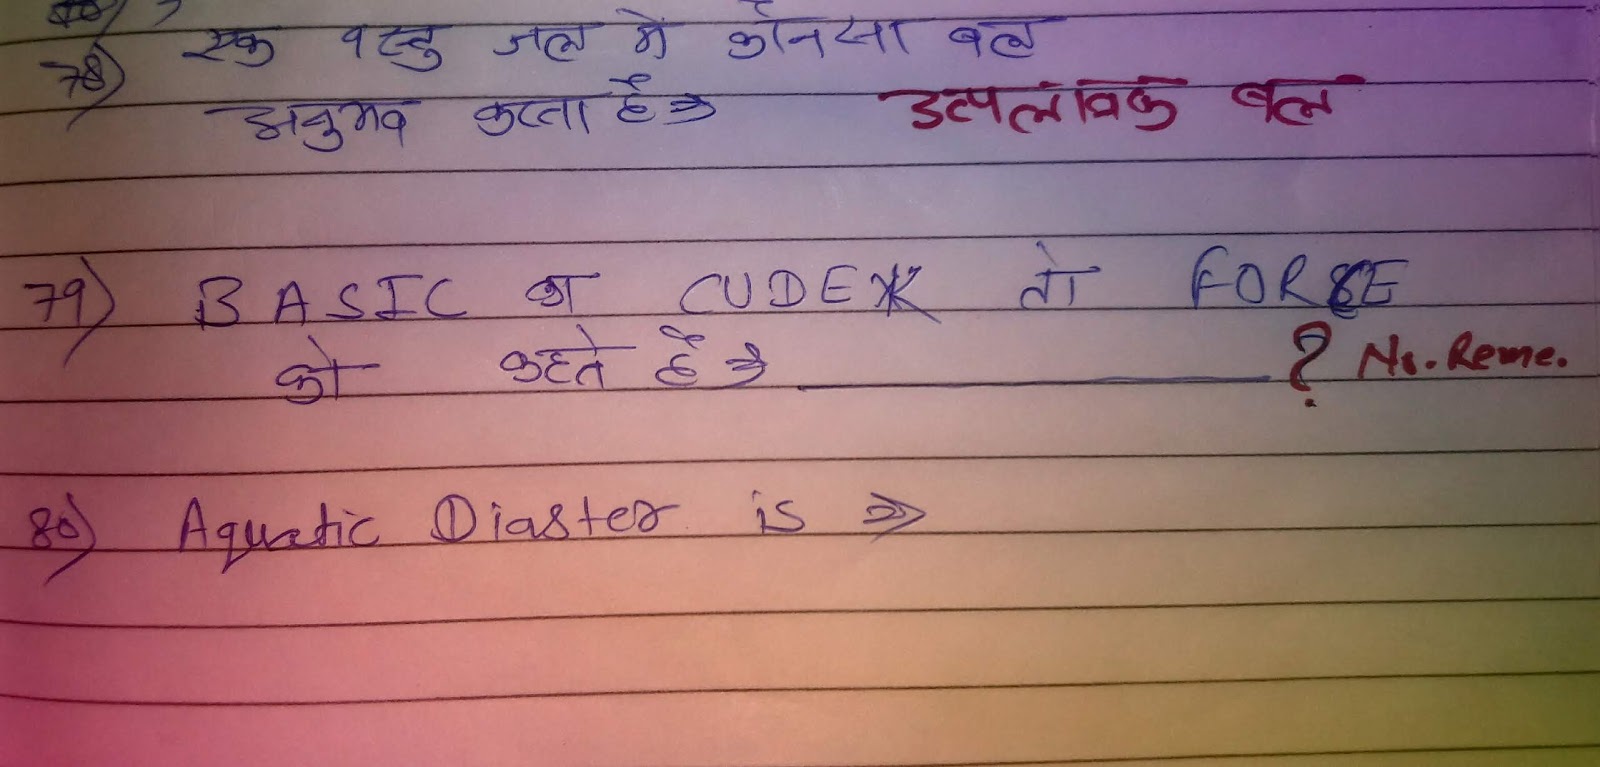 78) एक वस्तु जल में कौनसा बल
अनुभव करता है ⇒ उत्पलंविक बल
79) BASIC का CUDEXK तो FORCE
को कहते है ⇒ ______ ? No. Reme.
80) Aquatic Diaster is ⇒